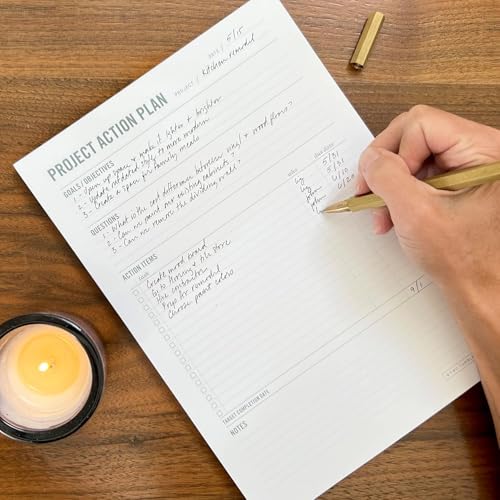 PROJECT ACTION PLAN
DATE / 5/15
PROJECT / Kitchen remodel
GOALS/OBJECTIVES
1 - Open up space & make it lighter + brighter
2 - Update outdated style to more modern
3 - Create a space for family meals
QUESTIONS
1 - What is the cost difference between vinyl + wood floors?
2 - Can we paint our existing cabinets?
3 - Can we remove the dividing wall?
ACTION ITEMS
TASK WHO DUE DATE
Create mood board 5/31
Go to flooring & tile store 5/31
Hire contractor 6/10
Prep for remodel 6/20
Choose paint colors
TARGET COMPLETION DATE 9/1
NOTES